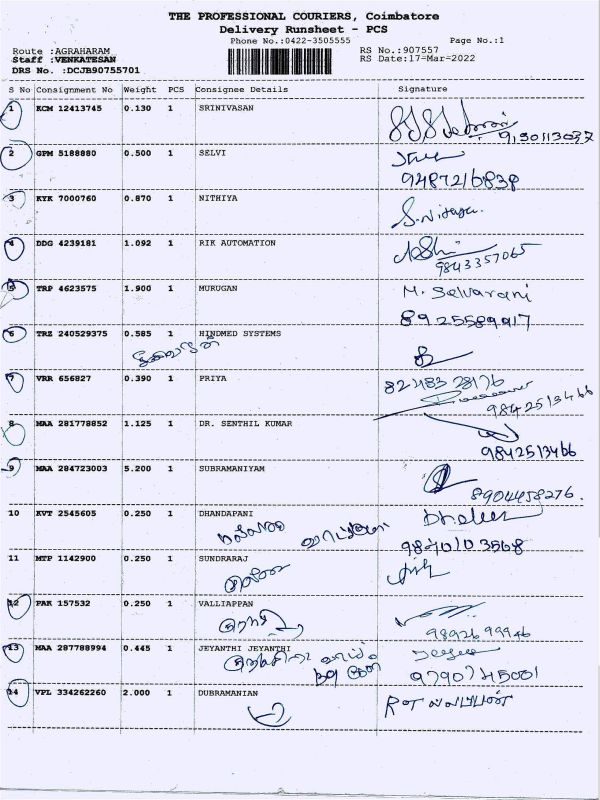 THE PROFESSIONAL COURIERS, Coimbatore
Delivery Runsheet - PCS
Phone No.:0422-3505555 Page No.:1
Route :AGRAHARAM RS No.:907557
Staff :VENKATESAN RS Date:17-Mar=2022
DRS No. :DCJB90755701
S No Consignment No Weight PCS Consignee Details Signature
1 KCM 12413745 0.130 1 SRINIVASAN
2 GPM 5188880 0.500 1 SELVI
9487216838
3 KYK 7000760 0.870 1 NITHIYA
4 DDG 4239181 1.092 1 RIK AUTOMATION
9843357065
5 TRP 4623575 1.900 1 MURUGAN M. Selvarani
8925589917
6 TRZ 240529375 0.585 1 HINDMED SYSTEMS
7 VRR 656827 0.390 1 PRIYA 8248328176
9842513466
8 MAA 281778852 1.125 1 DR. SENTHIL KUMAR
9842513466
9 MAA 284723003 5.200 1 SUBRAMANIYAM
8904458276.
10 KVT 2545605 0.250 1 DHANDAPANI
11 MTP 1142900 0.250 1 SUNDRARAJ
12 PAK 157532 0.250 1 VALLIAPPAN
9892699946
13 MAA 287788994 0.445 1 JEYANTHI JEYANTHI
9790745001
14 VPL 334262260 2.000 1 DUBRAMANIAN